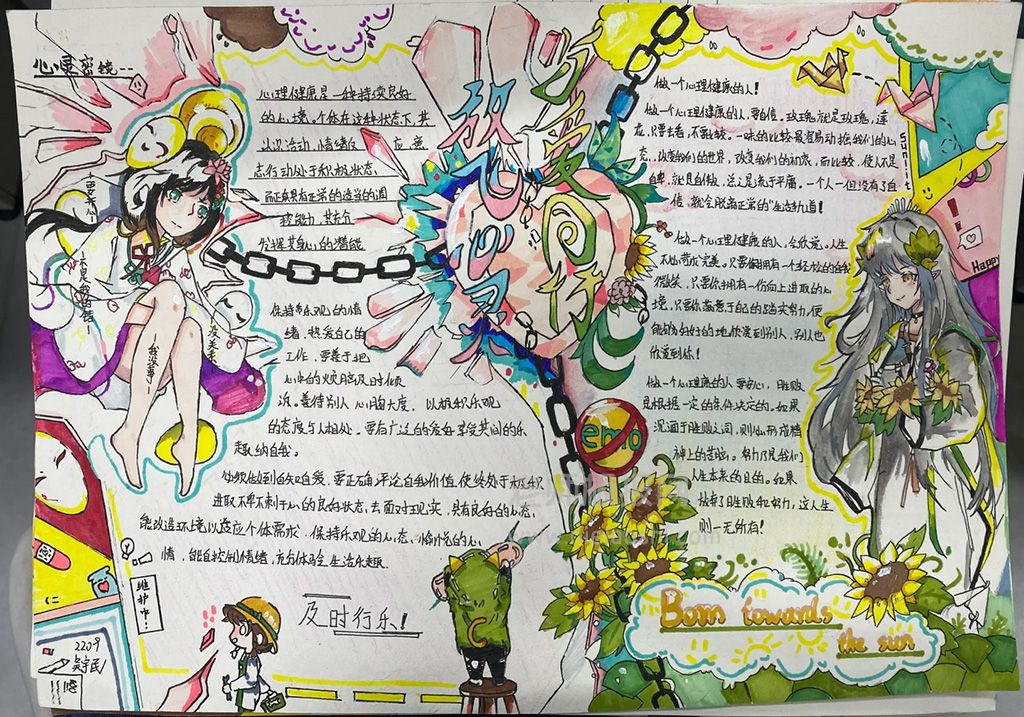 心理密镜--
心理健康是一种持续良好
的心境。个体在这种状态下,其
认识活动,情绪反应,意
志行动处于积极状态,
而正具有正常的适当的调
控能力,其充分
发挥其身心的潜能
一要开心!
不是我的错!
我没事!
没关系
保持着乐观的情
绪,热爱自己的
工作,要善于把
心中的烦脑及时倾
诉。善待别人,心胸大度,以极积乐观
的态度与人相处,要有广泛的爱好,享受其间的乐
趣,纳自我。
做到自知自爱,要正确评论自我价值,使终处于积
进取,不卑不亢,的良好状态,去面对现实,只有良好的心态,
能改造环境,以适应个体需求,保持乐观的心态,愉悦的心
情,能自控制情绪,充分体会生活乐趣.
及时行乐!
维护中:
2209
热爱
心灵
同行
emo
做一个心理健康的人!
做一个心理健康的人,要自信。玫瑰就是玫瑰,莲
花,只要去看,不要比较。一味的比较最容易动摇我们的心
态,改变我们的世界,改变我们的初衷,而比较,使人不是
自卑,就是自傲,总之是流于平庸。一个人一旦没有了自
信,就会脱离正常的"生活轨道!
做一个心理健康的人,会欣爱。人生
不必苛求完美。只要你拥有一个轻松的自我
微笑,只要你拥有一份向上进取的心
境,只要你满意于自己的踏实努力,便
能够好好的地欣爱到别人,别人也
欣爱到你!
做一个心理健康的人,要安心,胜败
是根据一定的条件决定的。如果
沉湎于胜败之间,则会形成精
神上的苦脑。努力乃是我们
人生本来的目的。如果
放弃了胜败和努力,这人生
则一无所有!
Sunlit
Happy
Born towards
the sun